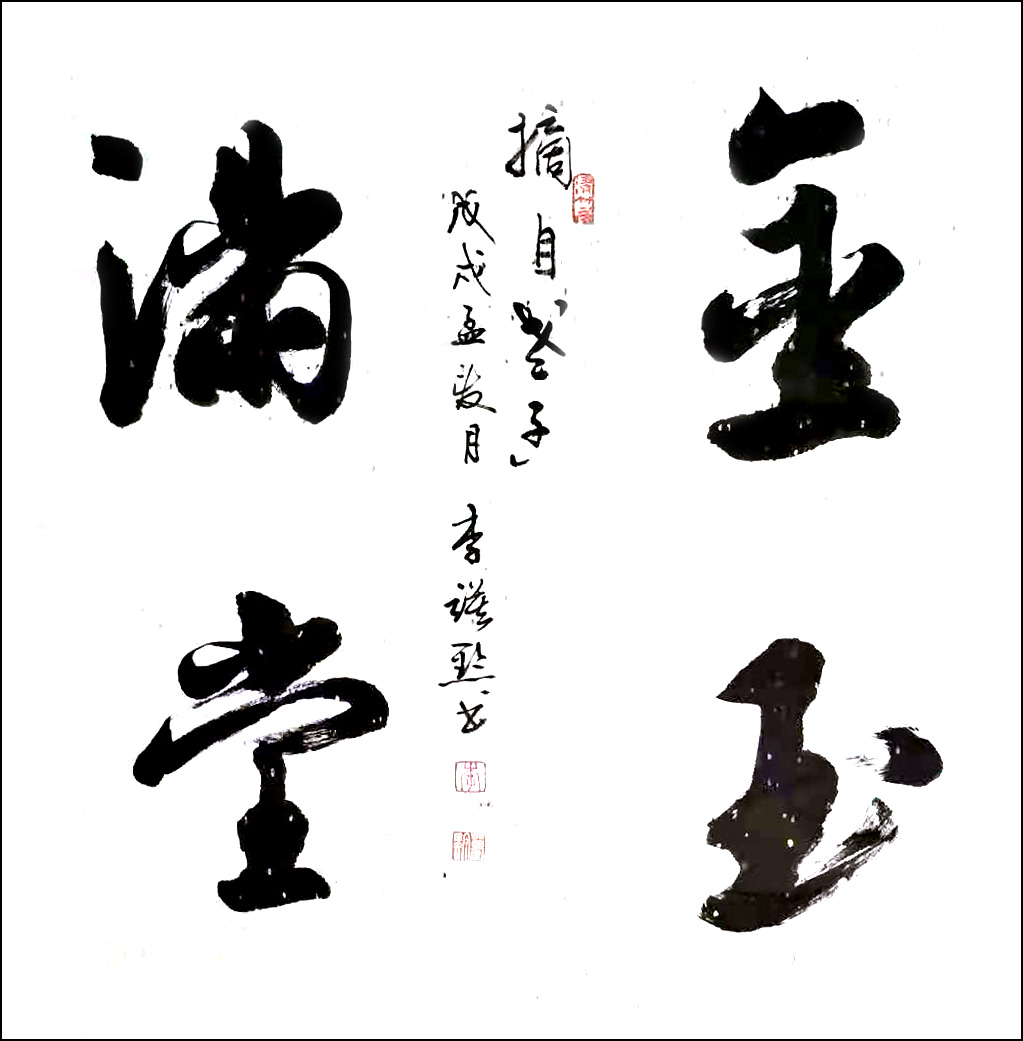 金玉
摘自「老子」
戊戌孟夏月 李 书
滿堂